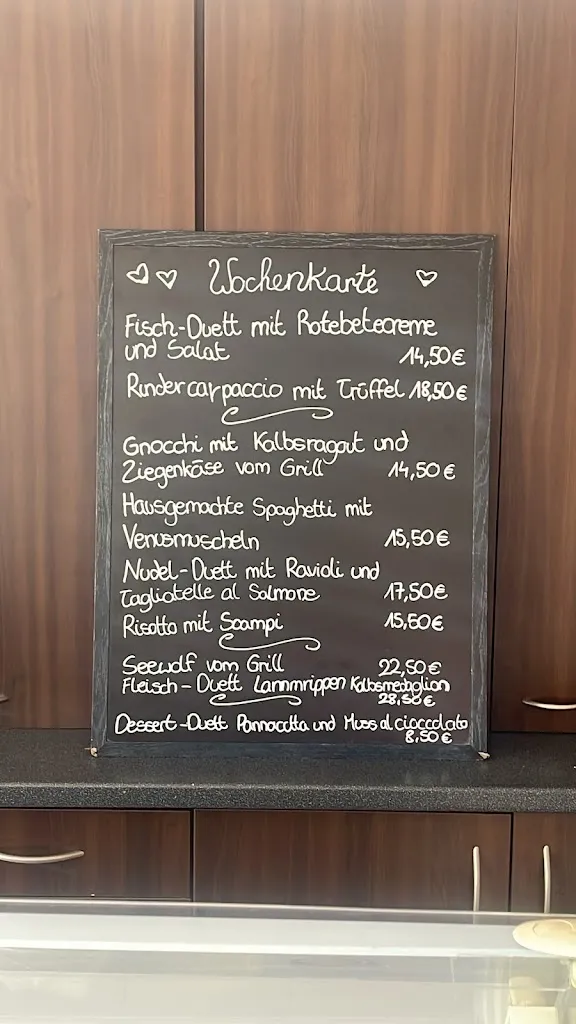 Wochenkarte
Fisch-Duett mit Rotebetecreme
und Salat 14,50€
Rindercarpaccio mit Trüffel 18,50€
Gnocchi mit Kalbsragout und
Ziegenkäse vom Grill 14,50€
Hausgemachte Spaghetti mit
Venusmuscheln 15,50€
Nudel-Duett mit Ravioli und
Tagliatelle al Salmone 17,50€
Risotto mit Scampi 15,50€
Seewolf vom Grill 22,50€
Fleisch-Duett Lammrippen Kalbsmedaglion
28,50€
Dessert-Duett Pannacotta und Muss al cioccolato
8,50€